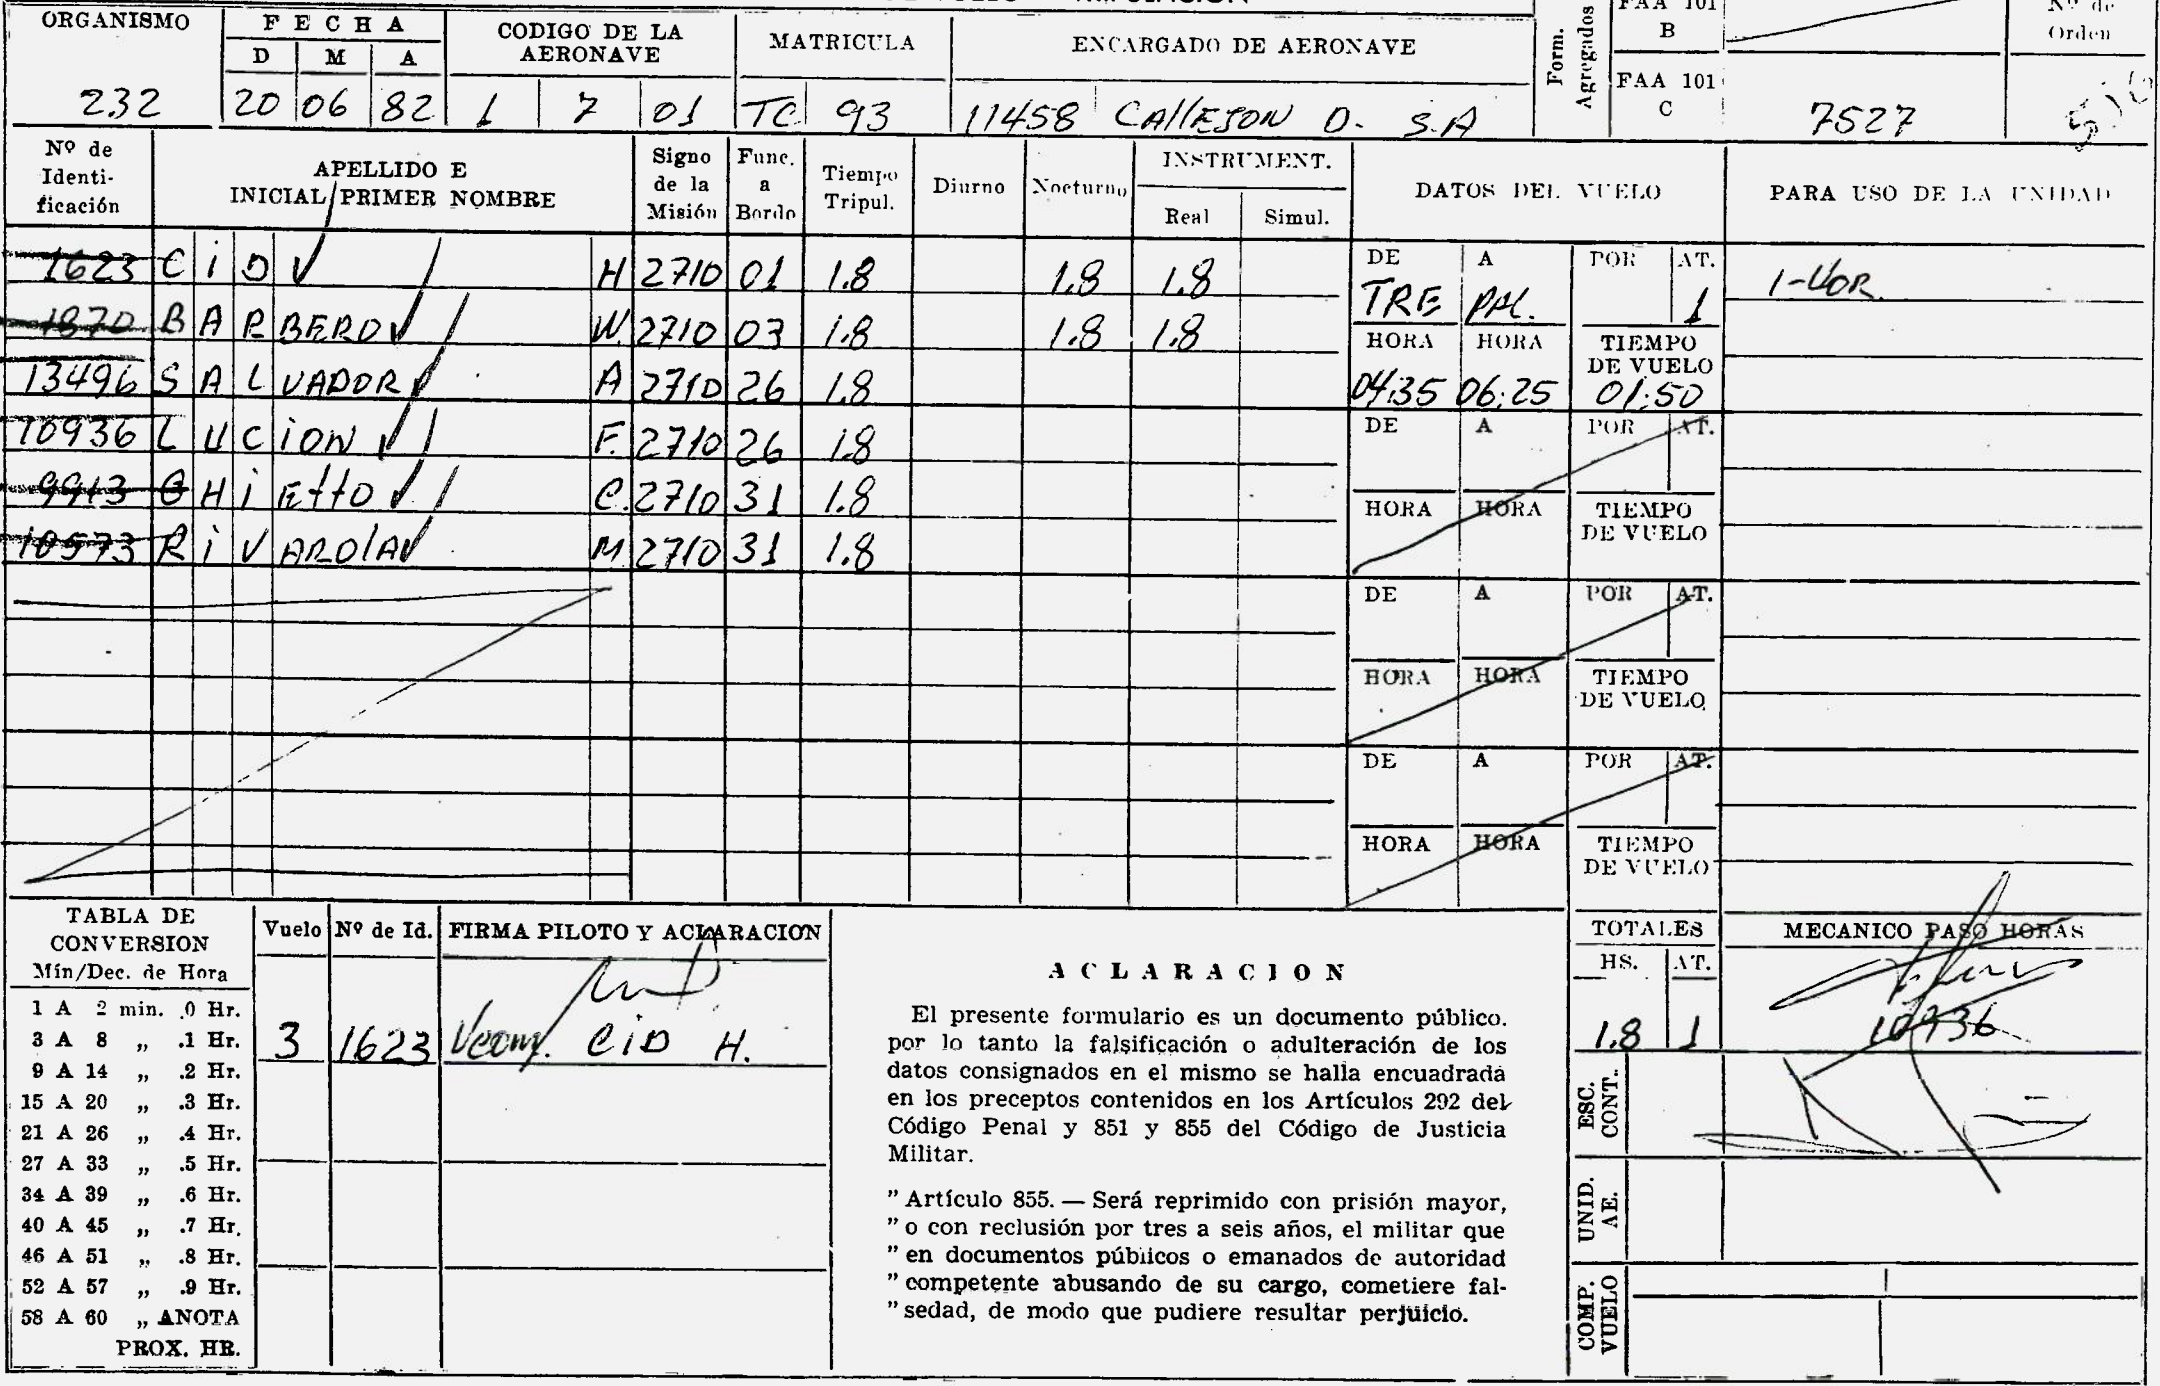 ORGANISMO F E C H A CODIGO DE LA AERONAVE MATRICULA ENCARGADO DE AERONAVE Form. Agregados FAA 101 B Nº de Orden
D M A FAA 101 C
232 20 06 82 1 7 01 TC 93 11458 CAllEJON D. S.A 7527
Nº de Identificación APELLIDO E INICIAL PRIMER NOMBRE Signo de la Misión Func. a Bordo Tiempo Tripul. Diurno Nocturno INSTRUMENT. Real Simul. DATOS DEL VUELO PARA USO DE LA UNIDAD
1623 CiD H 2710 01 1.8 1.8 1.8
1870 BARBERO W. 2710 03 1.8 1.8 1.8
13496 SALVADOR A 2710 26 1.8
10936 LUCiON F. 2710 26 1.8
9913 GHiEttO C. 2710 31 1.8
10573 RiVAROlA M 2710 31 1.8
DE A POR AT.
TRE PAL. 1 1-VOR
HORA HORA TIEMPO DE VUELO
04:35 06:25 01:50
DE A POR AT.
HORA HORA TIEMPO DE VUELO
DE A POR AT.
HORA HORA TIEMPO DE VUELO
DE A POR AT.
HORA HORA TIEMPO DE VUELO
TABLA DE CONVERSION
Mín/Dec. de Hora
1 A 2 min. .0 Hr.
3 A 8 „ .1 Hr.
9 A 14 „ .2 Hr.
15 A 20 „ .3 Hr.
21 A 26 „ .4 Hr.
27 A 33 „ .5 Hr.
34 A 39 „ .6 Hr.
40 A 45 „ .7 Hr.
46 A 51 „ .8 Hr.
52 A 57 „ .9 Hr.
58 A 60 „ ANOTA
PROX. HR.
Vuelo Nº de Id. FIRMA PILOTO Y ACLARACION
3 1623 Vcom. CiD H.
A C L A R A C I O N
El presente formulario es un documento público.
por lo tanto la falsificación o adulteración de los
datos consignados en el mismo se halla encuadrada
en los preceptos contenidos en los Artículos 292 del
Código Penal y 851 y 855 del Código de Justicia
Militar.
" Artículo 855. — Será reprimido con prisión mayor,
" o con reclusión por tres a seis años, el militar que
" en documentos públicos o emanados de autoridad
" competente abusando de su cargo, cometiere fal-
" sedad, de modo que pudiere resultar perjuicio.
TOTALES MECANICO PASO HORAS
HS. AT.
1.8 1 10936
ESC. CONT.
UNID. AE.
COMP. VUELO